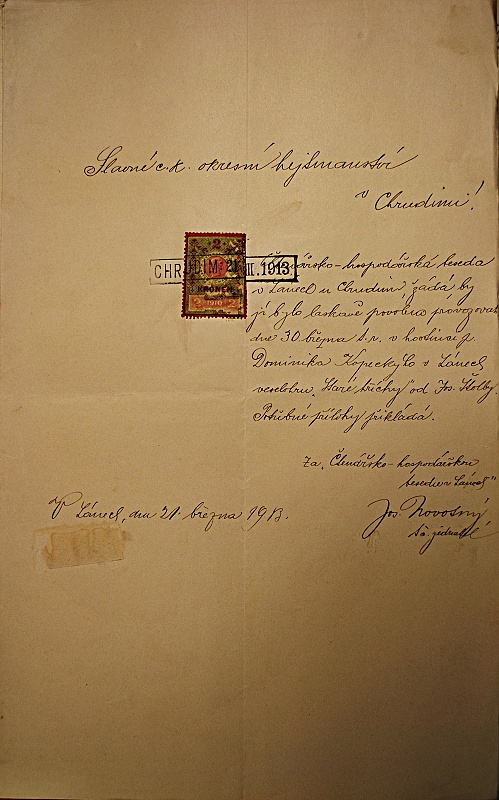 Slavné c. k. okresní hejtmanství
v Chrudimi!
2
CHRUDIM 21 III. 1913
KRONEN
2 1910 2
Čtenářsko-hospodářská beseda
v Lánech u Chrudimi, žádá by
jí bylo laskavě povoleno provozovat
dne 30 března t. r. v hostinci p.
Dominika Kopeckýho v Lánech
veselohru „Staré hříchy" od Jos. Štolby.
Potřebné přílohy přikládá.
Za „Čtenářsko-hospodářskou
besedu v Lánech"
V Lánech, dne 21. března 1913.
Jos. Novotný
jednatel